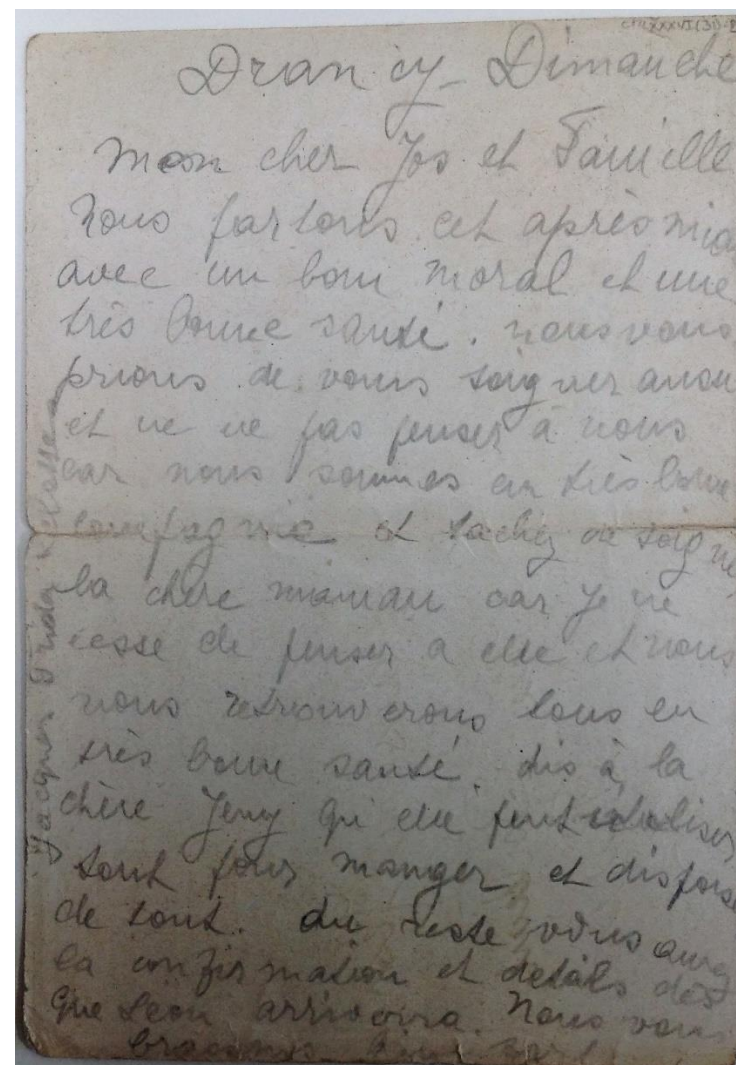 Drancy - Dimanche
Mon cher Jos et Famille
Nous partons cet après mid
avec un bon moral et une
très bonne santé. nous vous
prions de vous soigner
et ne ne pas penser à nous
car nous sommes en très bonne
compagnie et tachez de soigne
la chère maman car je ne
cesse de penser a elle et nous
nous retrouverons tous en
très bonne santé. dis à la
chère Jeny qu elle peut
tout pour manger et dispose
de tout. du reste vous aurez
la confirmation et détails dès
que Léon arrivera. Nous vous